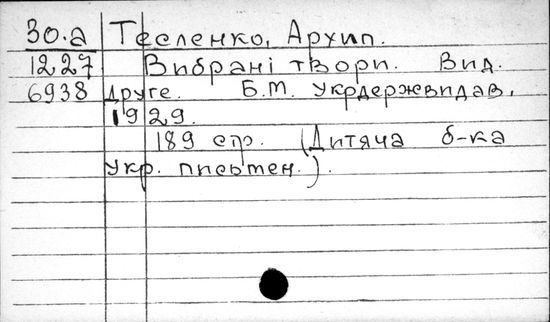 30.а Тесленко, Архип.
1227 Вибрані твори. Вид.
6938 друге. Б.М. Укрдержвидав,
1929.
189 стр. (Дитяча б-ка
Укр. письмен.).